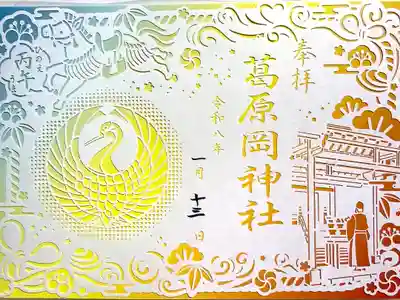 奉拝
葛原岡神社
令和八年
一月十三日
丙午
ひのえうま